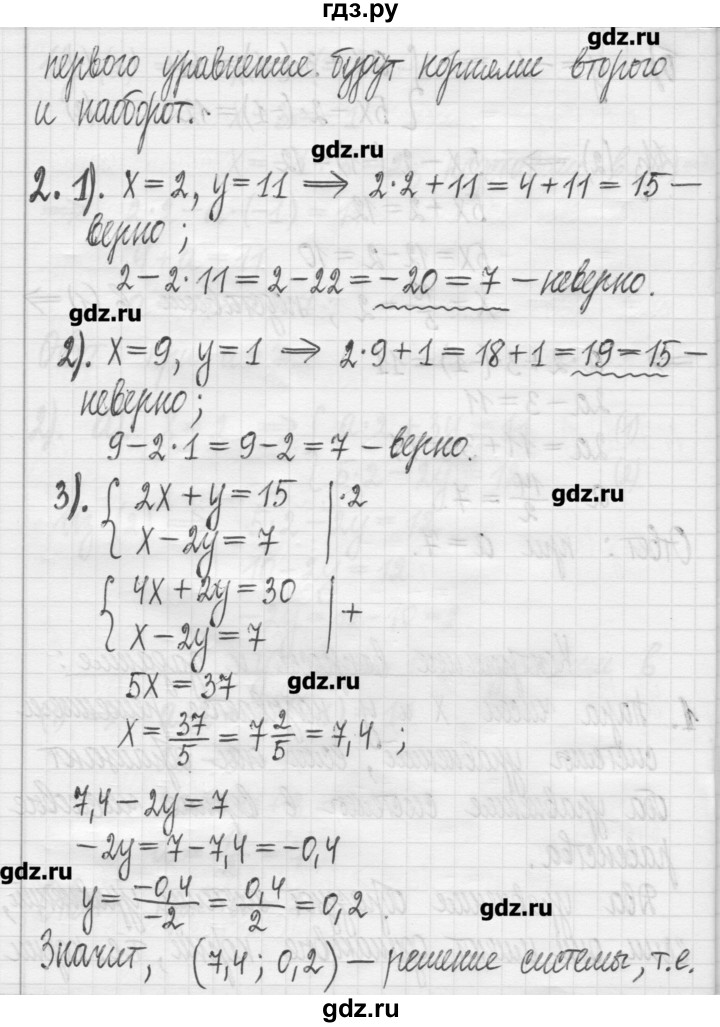 гдз.ру
gdz.ru
первого уравнение будут корнями второго
и наоборот.
gdz.ru
2. 1). x=2, y=11 ⟹ 2·2+11=4+11=15 –
верно;
2-2·11=2-22=-20=7 – неверно.
gdz.ru
2). x=9, y=1 ⟹ 2·9+1=18+1=19=15 –
неверно;
9-2·1=9-2=7 – верно.
3). { 2x+y=15 | ·2
x-2y=7
gdz.ru
{ 4x+2y=30 | +
x-2y=7
5x=37
gdz.ru
x=37/5=7 2/5=7,4. ;
7,4-2y=7
-2y=7-7,4=-0,4
gdz.ru
y=-0,4/-2=0,4/2=0,2.
gdz.ru
Значит, (7,4; 0,2) – решение системы, т.е.
gdz.ru